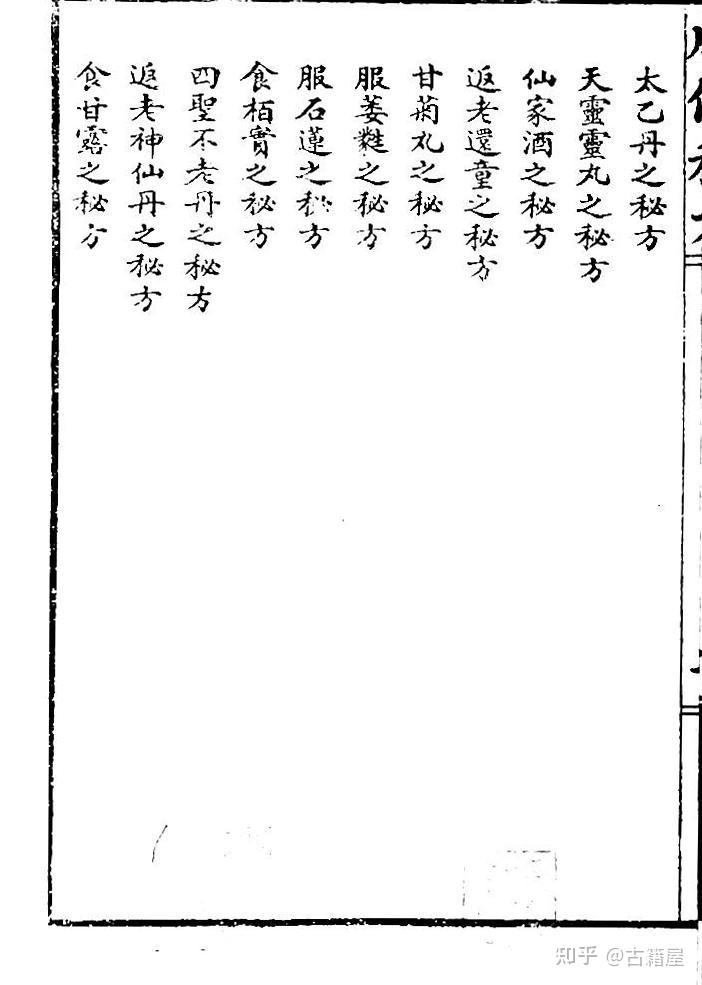 太乙丹之秘方
天靈靈丸之秘方
仙家酒之秘方
返老還童之秘方
甘菊丸之秘方
服萎蕤之秘方
服石蓮之秘方
食栢實之秘方
四聖不老丹之秘方
返老神仙丹之秘方
食甘露之秘方
知乎 @古籍屋